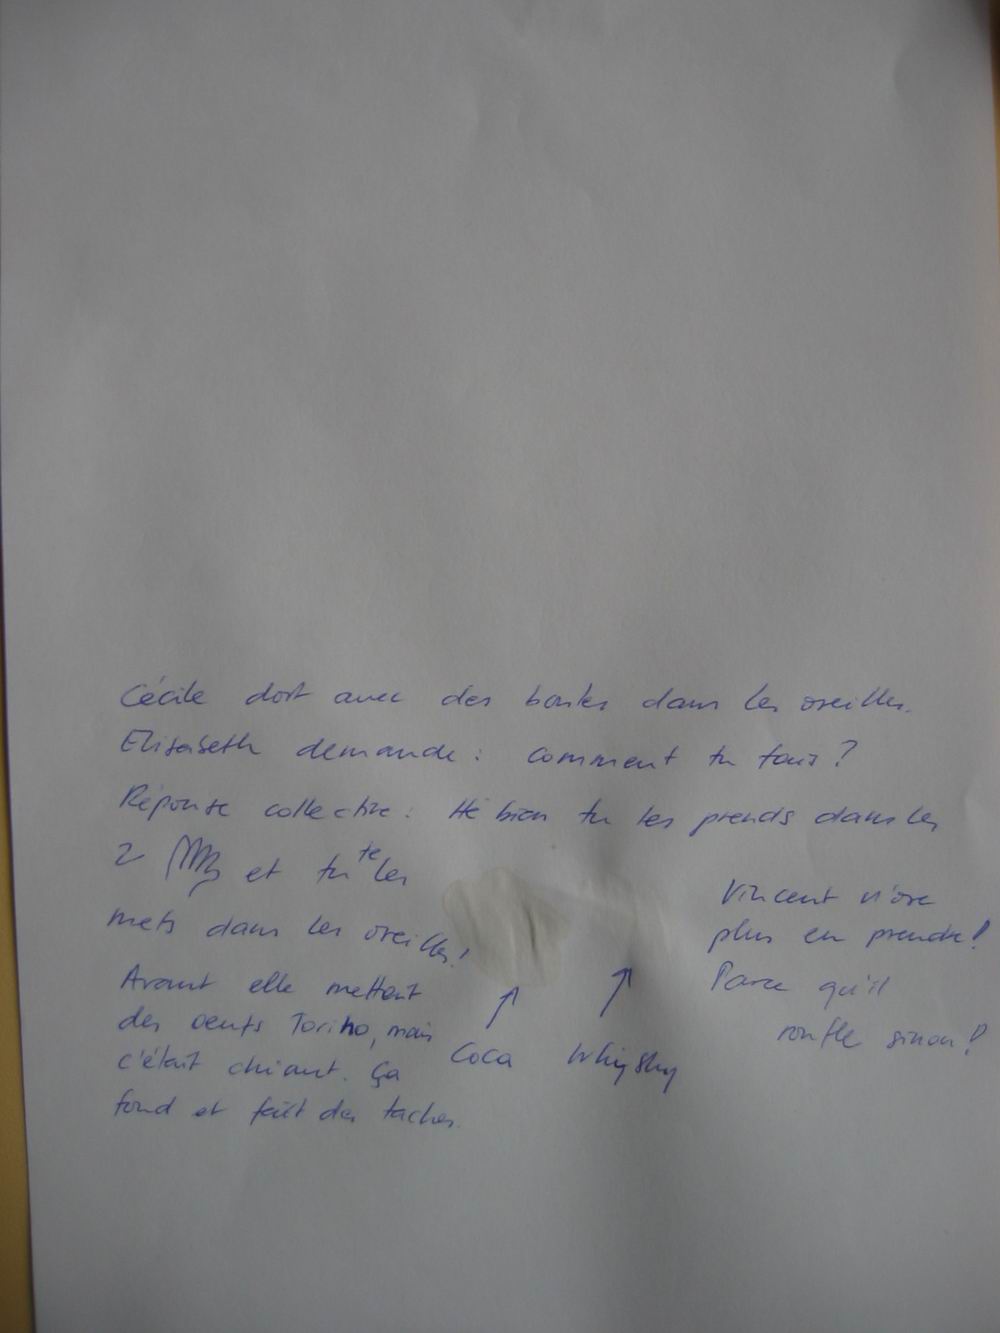 Cécile dort avec des boules dans les oreilles.
Elisabeth demande : Comment tu fais ?
Réponse collective : Hé bien tu les prends dans les
2 et tu te les
mets dans les oreilles !
Avant elle mettait
des oeufs Torino, mais
c'était chiant. Ça
fond et fait des taches.
Coca
Whisky
Vincent n'ose
plus en prendre !
Parce qu'il
ronfle sinon !